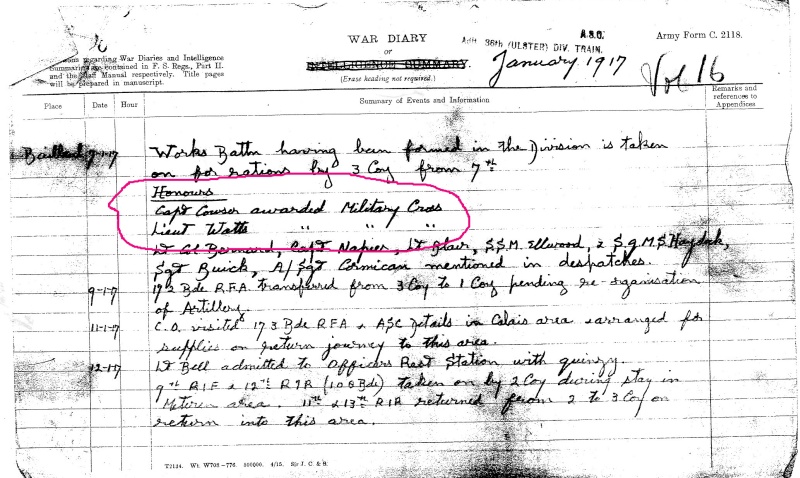 WAR DIARY
or
INTELLIGENCE SUMMARY.
(Erase heading not required.)
A.S.C.
36th (ULSTER) DIV. TRAIN.
January 1917
Army Form C. 2118.
Vol 16
regarding War Diaries and Intelligence
Summaries are contained in F. S. Regs., Part II.
and the Staff Manual respectively. Title pages
will be prepared in manuscript.
Place Date Hour Summary of Events and Information Remarks and
references to
Appendices
7-1-17 Works Battn having been formed in the Division is taken
on for rations by 3 Coy from 7th
Honours
Capt Cowser awarded Military Cross
Lieut Watts " " "
Lt Col Bernard, Capt Napier, Lt Blair, S.S.M. Ellwood, & S.Q.M.S.
Sgt Buick, A/Sgt Cormican mentioned in despatches.
9-1-17 173 Bde R.F.A. transferred from 3 Coy to 1 Coy pending re-organisation
of Artillery
11-1-17 C.O. visited 173 Bde RFA & ASC Details in Calais area & arranged for
supplies on return journey to this area.
12-1-17 Lt Bell admitted to Officers Rest Station with quinzy.
9th RIF & 12th RIR (108 Bde) taken on by 2 Coy during stay in
Meteren area. 11th & 13th RIR returned from 2 to 3 Coy on
return into this area.
T2134. Wt. W708-776. 500000. 4/15. Sir J. C. & S.